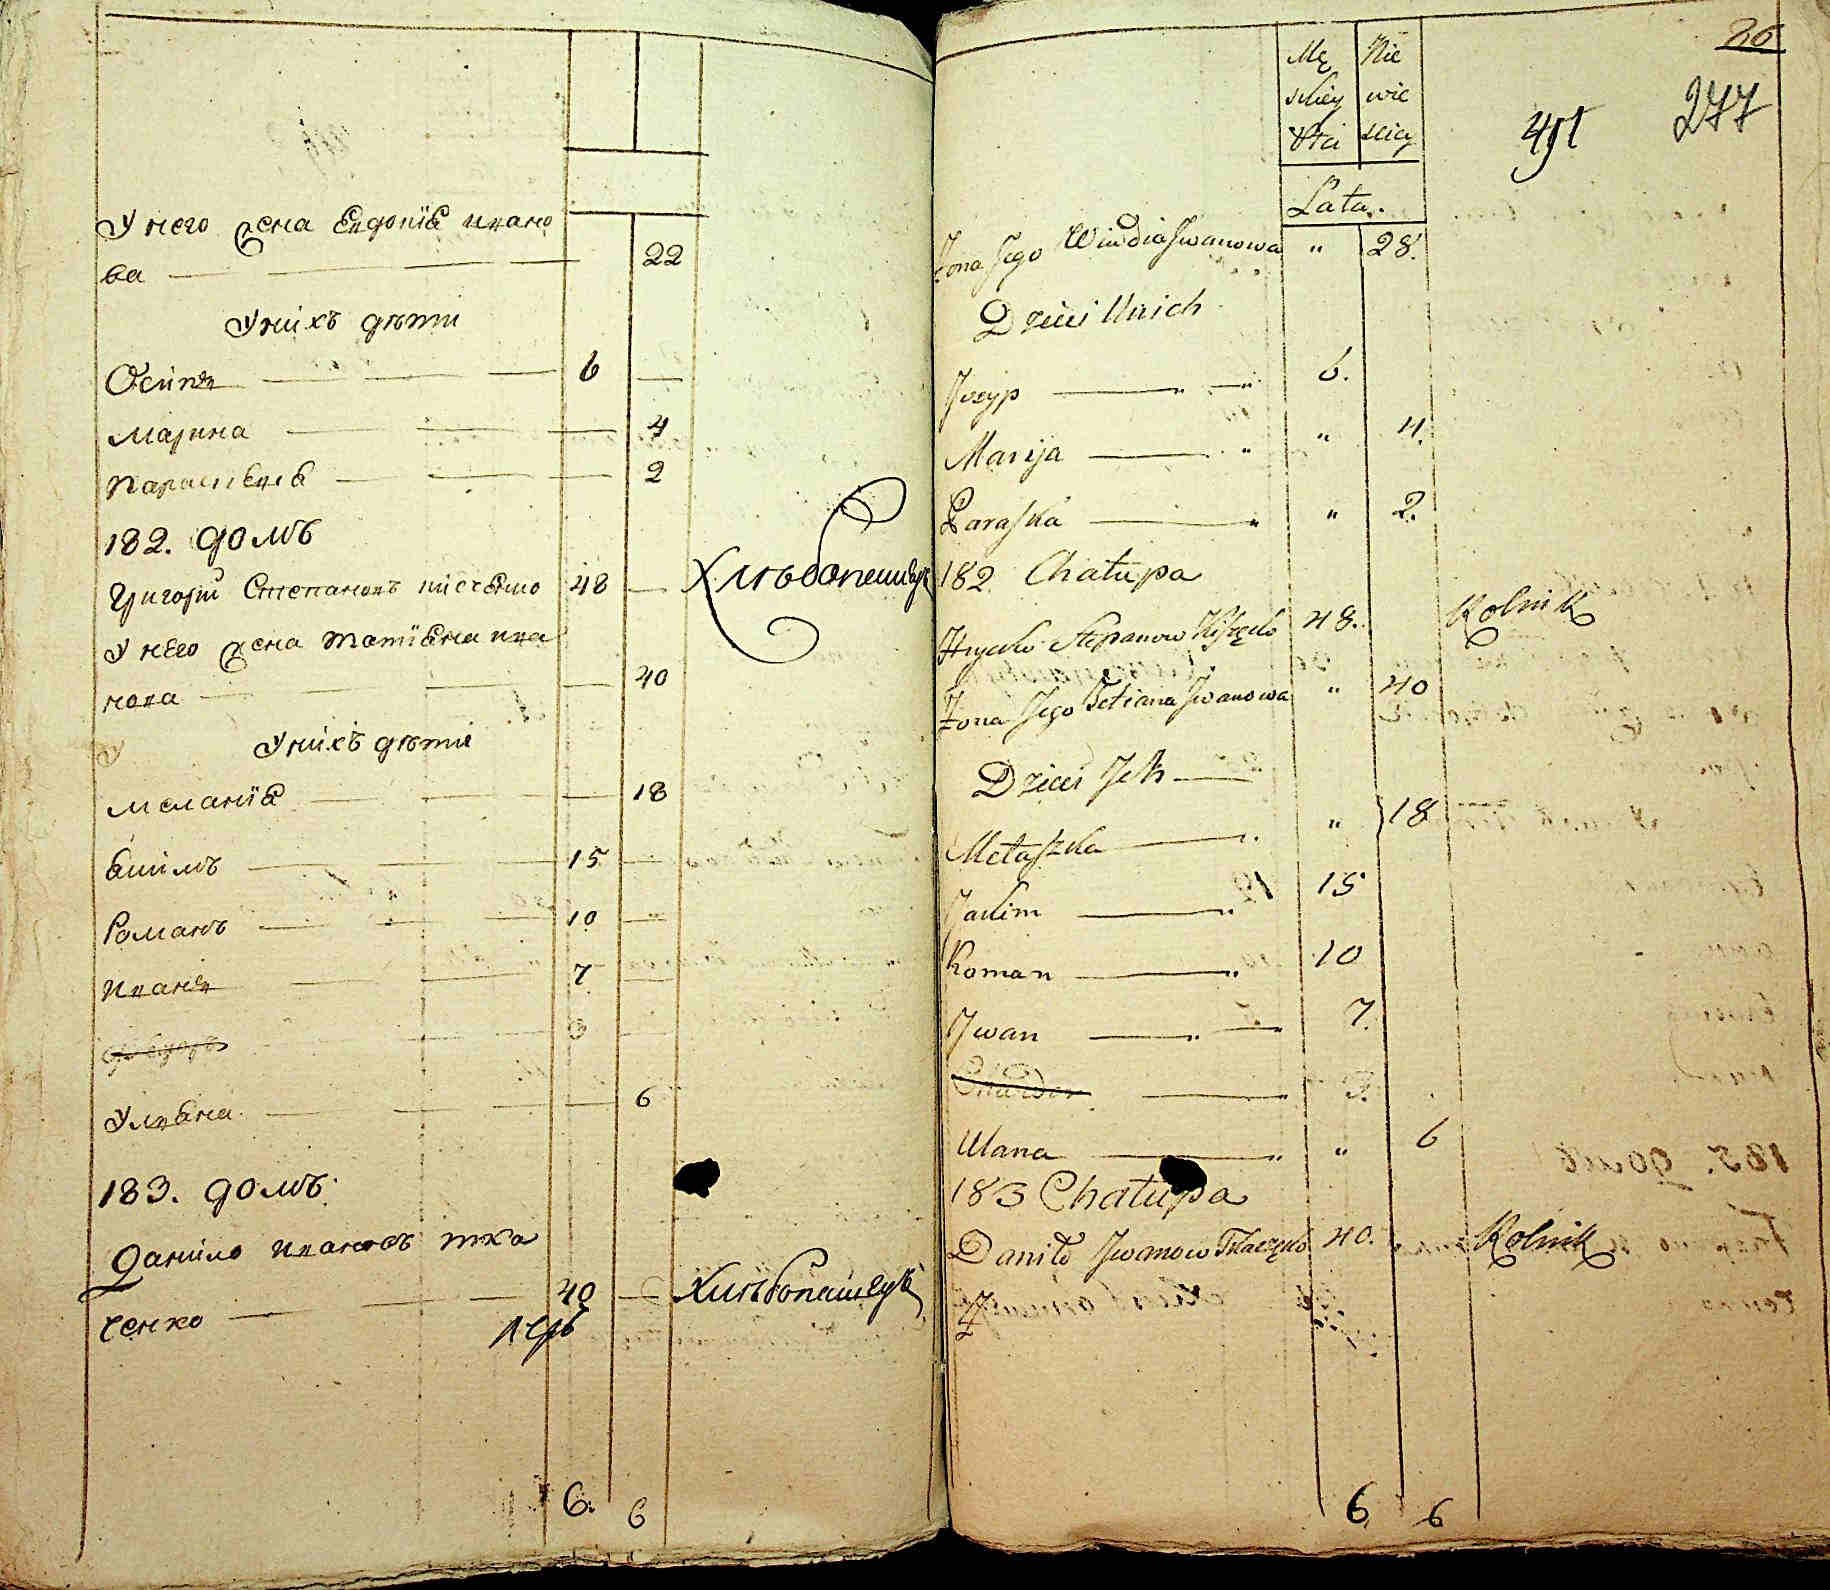 У него жена Евдокiя ивано
ва — 22
У нихъ дѣти
Осипъ — 6 —
Марина — 4
Параскевiя — 2
182. домъ
Григорiй Степановъ 48 — Хлѣбопашецъ
У него жена Татiяна ива
нова — 40
У
У нихъ дѣти
Меланiя — 18
Якимъ — 15 —
Романъ — 10 —
Иванъ — 7 —
Ѳедоръ — 3 —
Улияна — 6
183. домъ
Данило ивановъ тка
ченко — 40 — Хлѣбопашецъ
6. 6
Mę Nie
skiey wie
Płci sciey
Lata.
86
277
Żona Jego Iwanowa " 28.
Dzieci Unich
Jozyp — " 6.
Marija — " " 4.
Paraska — " " 2.
182 Chałupa
Hryćko Stepanow 48. Rolnik
Żona Jego Tetiana Iwanowa " 40
Dzieci Ich —
Mełaszka — " " 18
Jakim — " 15
Roman — " 10
Iwan — " 7.
Chwedor — " 3.
Ulana — " " 6
183 Chałupa
Daniło Iwanow Tkaczęko 40. Rolnik
6 6